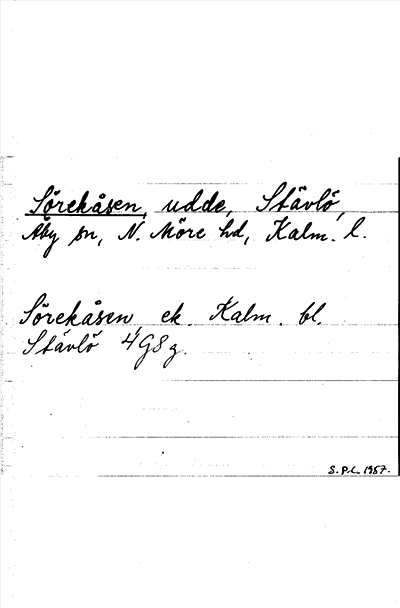 Sörekåsen, udde, Stävlö,
Åby sn, N. Möre hd, Kalm. l.
Sörekåsen, ek. Kalm. bl.
Stävlö 4G8g.
S.P.L. 1957.